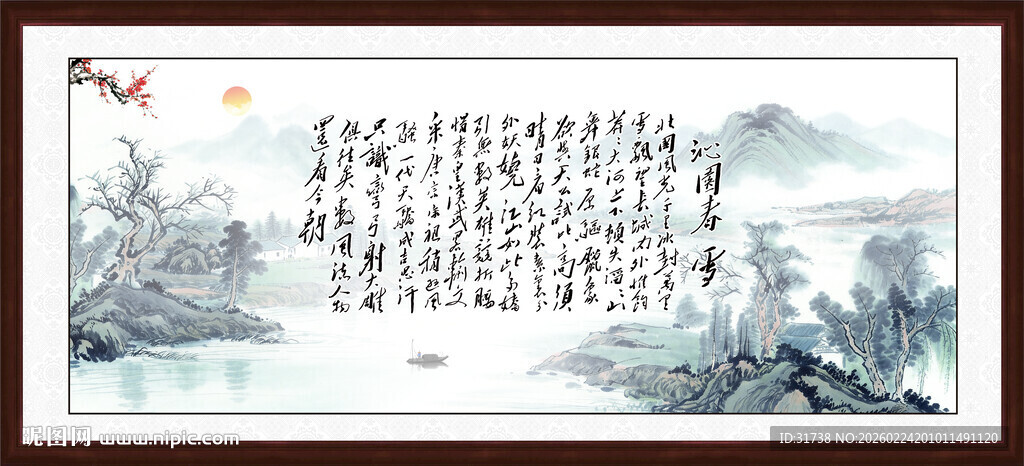 沁園春 雪
北国风光千里冰封萬里
雪飘望长城内外惟馀
莽々大河上下顿失滔々山
舞银蛇原驱臘象
欲与天公试比高须
晴日看红装素裹分
外妖娆江山如此多娇
引无数英雄竞折腰
惜秦皇漢武略输文
采唐宗宋祖稍逊风
骚一代天骄成吉思汗
只識彎弓射大雕
俱往矣数風流人物
還看今朝
昵图网 www.nipic.com
ID:31738 NO:20260224201011491120